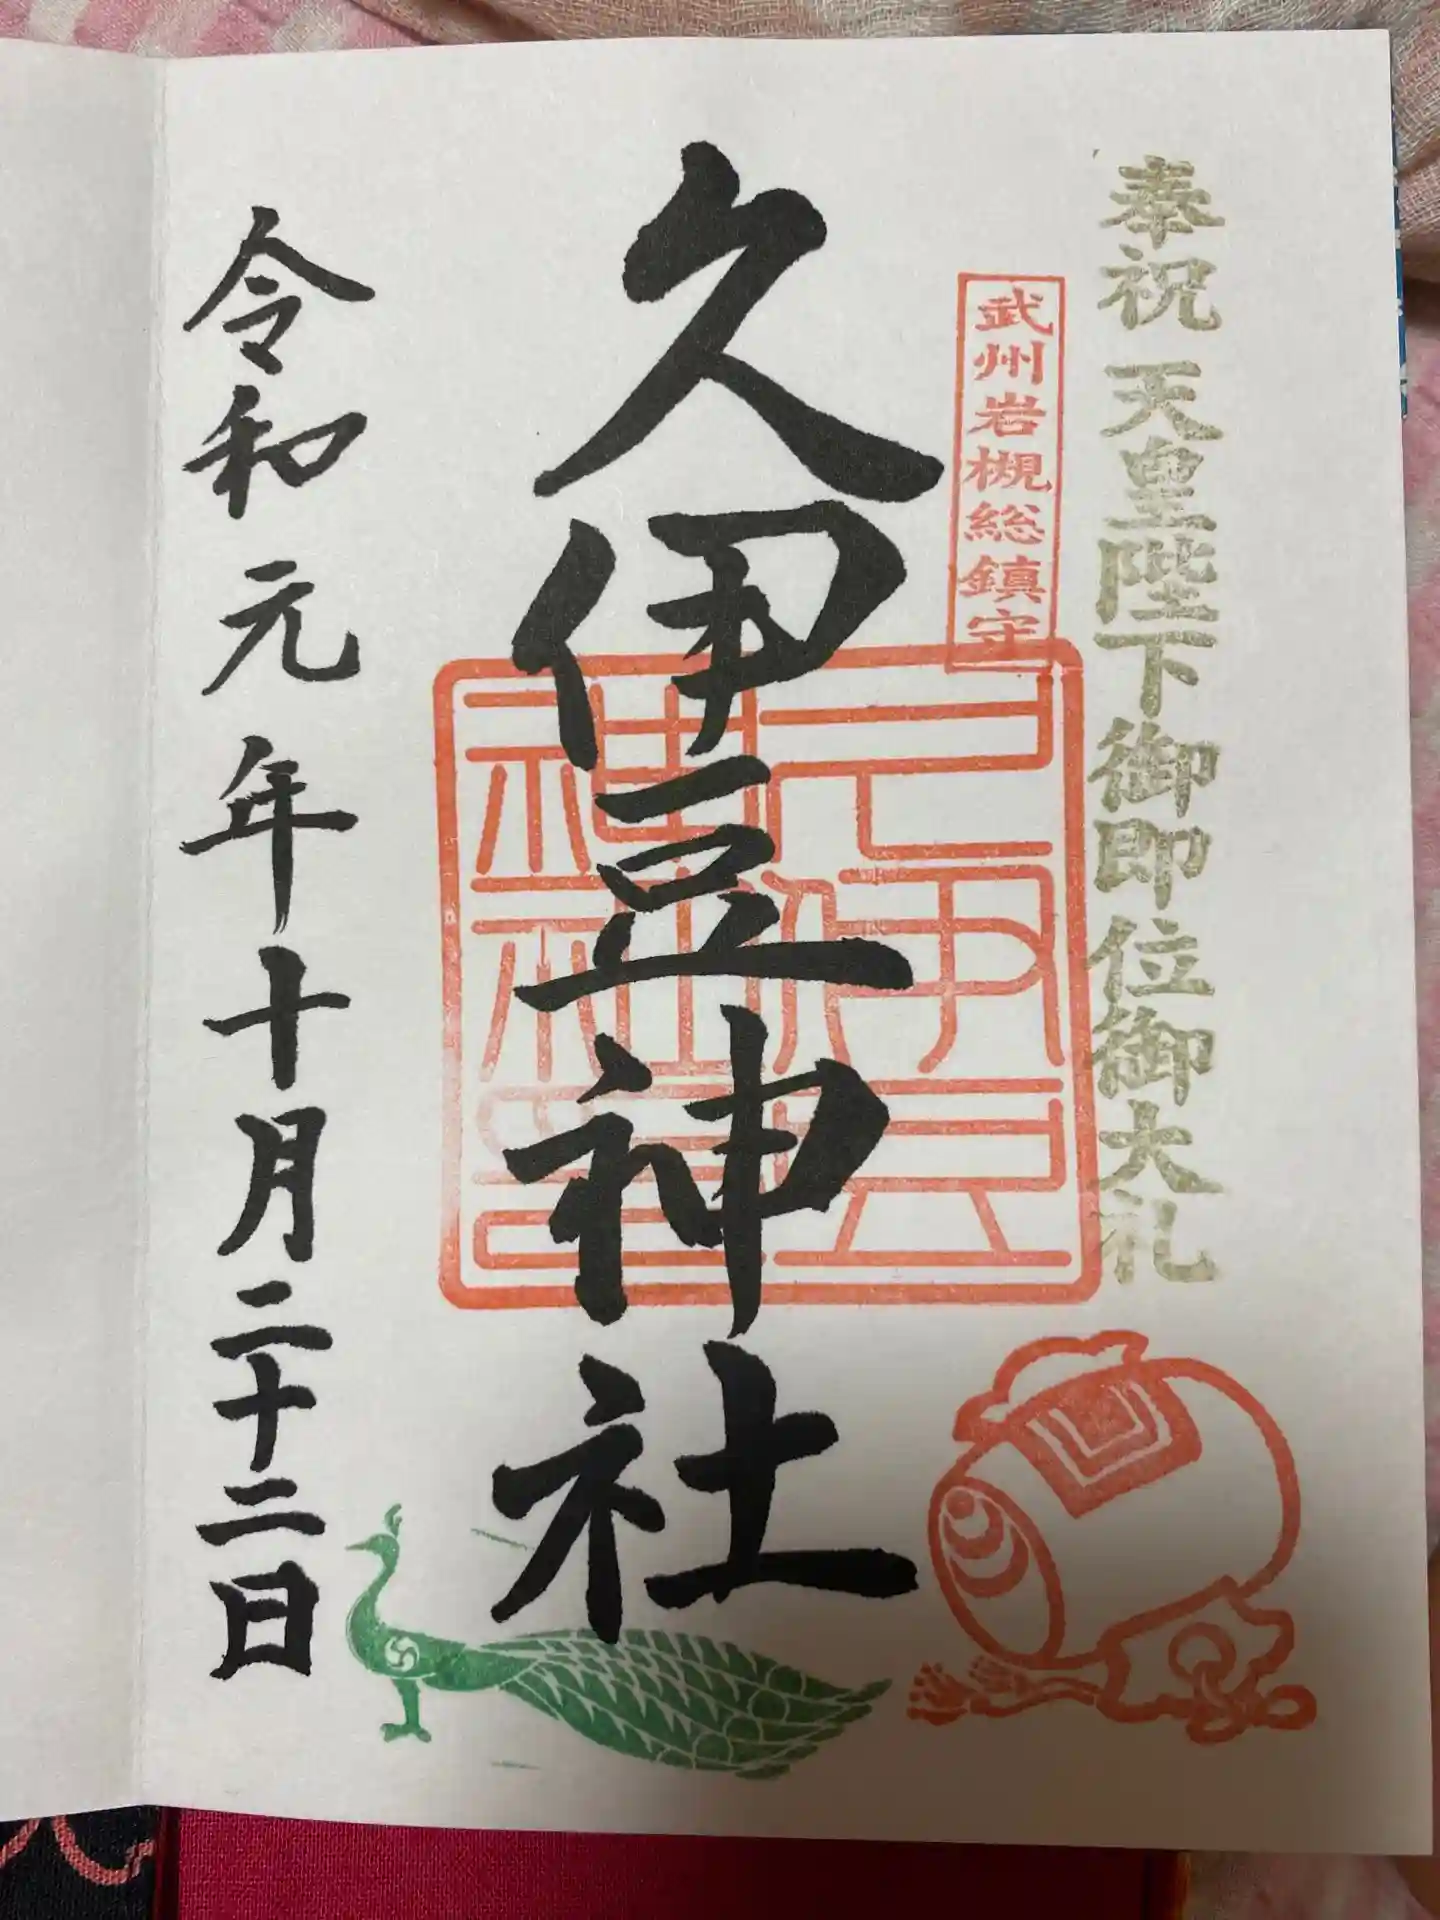 奉祝 天皇陛下御即位御大礼
武州岩槻総鎮守
久伊豆神社
久伊豆神社
令和元年十月二十二日